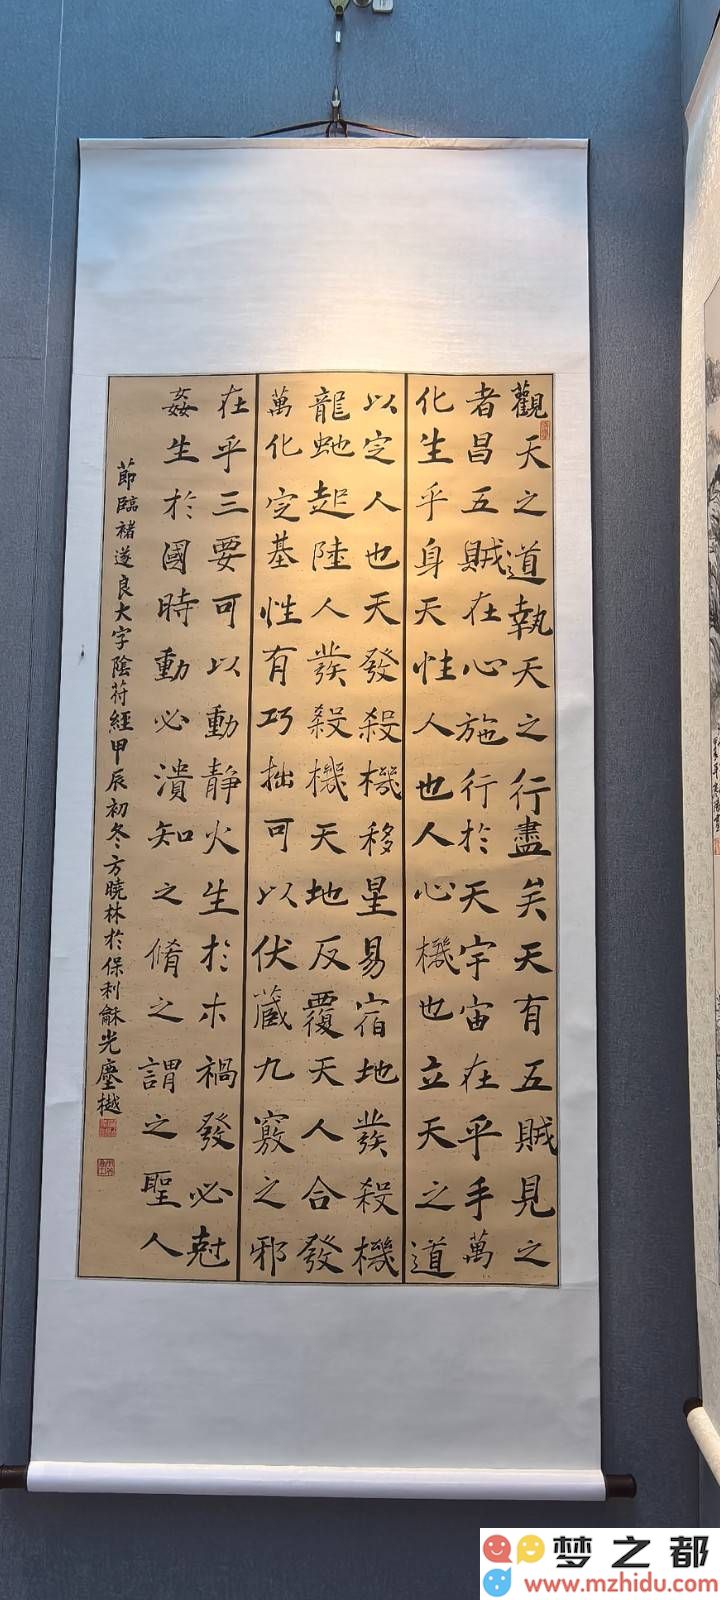 觀天之道執天之行盡矣天有五賊見之
者昌五賊在心施行於天宇宙在乎手萬
化生乎身天性人也人心機也立天之道
以定人也天發殺機移星易宿地發殺機
龍虵起陸人發殺機天地反覆天人合發
萬化定基性有巧拙可以伏藏九竅之邪
在乎三要可以動靜火生於木禍發必尅
姦生於國時動必潰知之脩之謂之聖人
節臨褚遂良大字陰符經甲辰初冬方曉林於保利龢光塵樾
梦之都
www.mzhidu.com